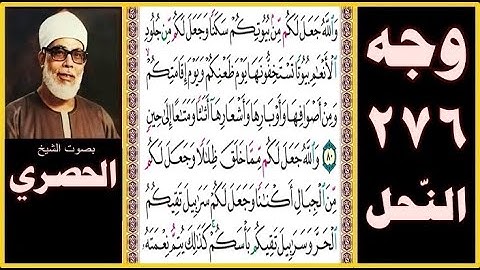 وجه
٢٧٦
النّحل
وَاللَّهُ جَعَلَ لَكُم مِّنۢ بُيُوتِكُمْ سَكَنًا وَجَعَلَ لَكُم مِّن جُلُودِ
الْأَنْعَٰمِ بُيُوتًا تَسْتَخِفُّونَهَا يَوْمَ ظَعْنِكُمْ وَيَوْمَ إِقَامَتِكُمْ
وَمِنْ أَصْوَافِهَا وَأَوْبَارِهَا وَأَشْعَارِهَآ أَثَٰثًا وَمَتَٰعًا إِلَىٰ حِينٍ
٨٠ وَاللَّهُ جَعَلَ لَكُم مِّمَّا خَلَقَ ظِلَٰلًا وَجَعَلَ لَكُم
مِّنَ الْجِبَالِ أَكْنَٰنًا وَجَعَلَ لَكُمْ سَرَٰبِيلَ تَقِيكُمُ
الْحَرَّ وَسَرَٰبِيلَ تَقِيكُم بَأْسَكُمْ كَذَٰلِكَ يُتِمُّ نِعْمَتَهُۥ
بصوت الشيخ
الحصري